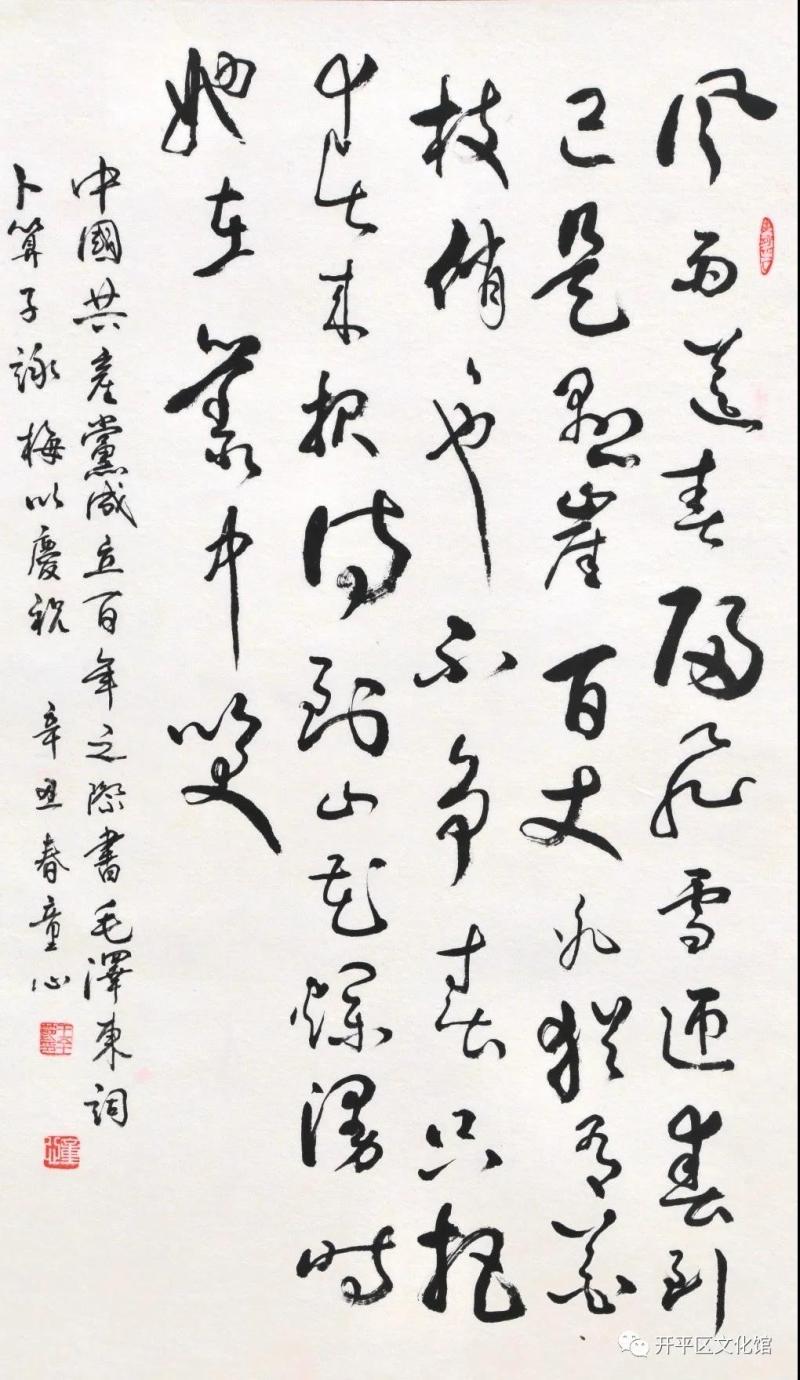 風雨送春歸飛雪迎春到
已是懸崖百丈冰猶有花
枝俏々也不爭春只把
春來報待到山花爛漫時
她在叢中笑
中國共產黨成立百年之際書毛澤東詞
卜算子詠梅以慶祝 辛丑春童心
开平区文化馆